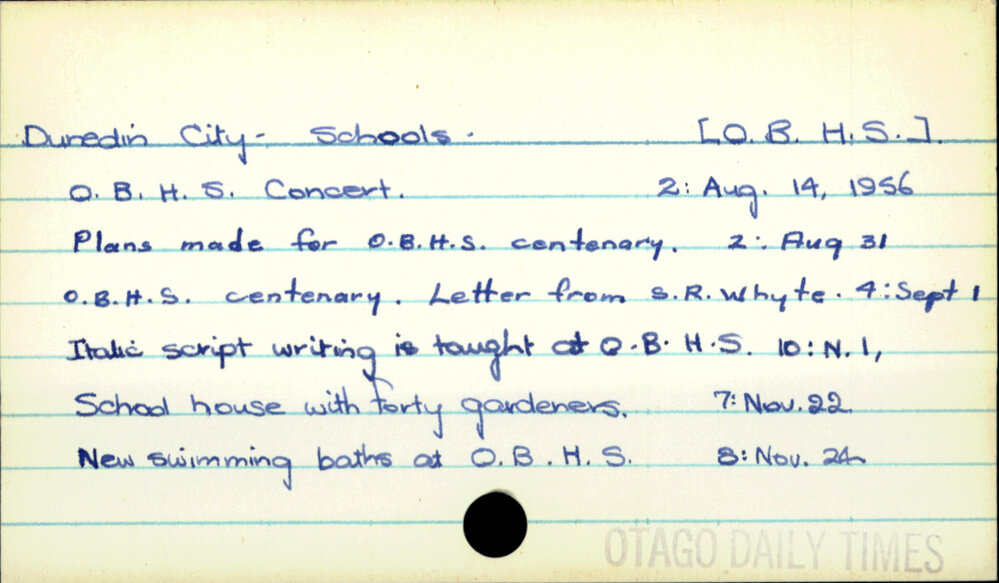 Dunedin City - Schools. [O. B. H. S.].
O. B. H. S. Concert. 2: Aug. 14, 1956
Plans made for O.B.H.S. centenary. 2: Aug 31
O.B.H.S. centenary. Letter from S.R. Whyte. 4: Sept 1
Italic script writing is taught at O.B.H.S. 10: N. 1,
School house with forty gardeners. 7: Nov. 22.
New swimming baths at O.B.H.S. 8: Nov. 24
OTAGO DAILY TIMES